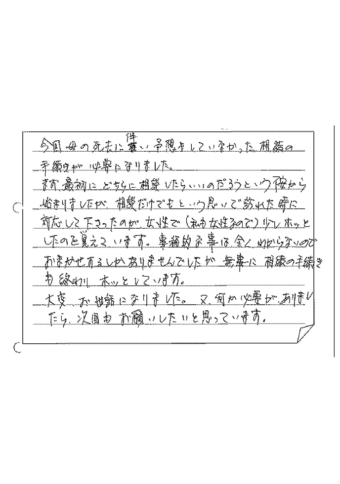 今回母の死去に伴い予想をしていなかった相続の
手続きが必要になりました。
まず最初にどちらに相談したらいいのだろうという不安から
始まりましたが、相談だけでもという思いで訪れた時に
対応して下さったのが女性で(私も女性なので)少しホッと
したのを覚えています。事務的な事は全くわからないので
おまかせするしかありませんでしたが無事に相続の手続き
も終わり ホッとしています。
大変、お世話になりました。又、何か必要がありまし
たら、次回もお願いしたいと思っています。